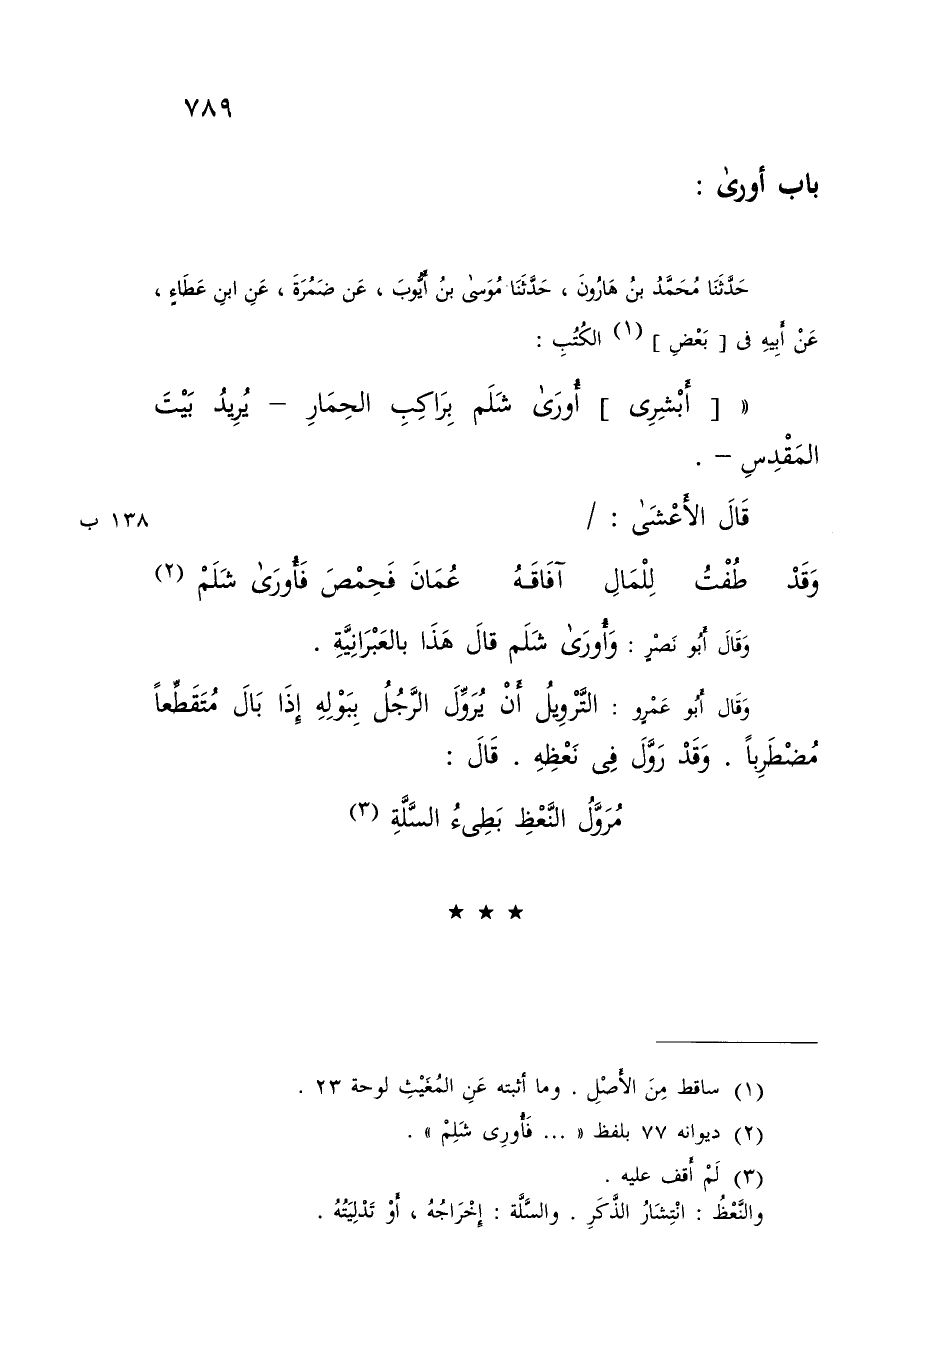 ٧٨٩
باب أورىٰ :
حَدَّثَنَا مُحَمَّدُ بنُ هَارُونَ ، حَدَّثَنَا مُوَسىٰ بنُ أَيُّوبَ ، عَن ضَمُرَةَ ، عَنِ ابنِ عَطَاءٍ ،
عَنْ أَبِيهِ فى [ بَعْضِ ] (١) الكُتُبِ :
« [ أَبْشِرِى ] أُورَىٰ شَلَم بِرَاكِبِ الحِمَارِ – يُرِيدُ بَيْتَ
المَقْدِسِ – .
قَالَ الأَعْشَىٰ : /
١٣٨ ب
وَقَدْ طُفْتُ لِلْمَالِ آفَاقَهُ عُمَانَ فَحِمْصَ فَأُورَىٰ شَلَمْ (٢)
وَقَالَ أَبُو نَصْرٍ : وَأُورَىٰ شَلَم قالَ هَذَا بالعَبْرَانِيَّةِ .
وَقَال أَبُو عَمْرٍو : التَّرْوِيلُ أَنْ يُرَوِّلَ الرَّجُلُ بِبَوْلِهِ إِذَا بَالَ مُتَقَطِّعاً
مُضْطَرِباً . وَقَدْ رَوَّلَ فِى نَعْظِهِ . قَالَ :
مُرَوَّلُ النَّعْظِ بَطِىءُ السَّلَّةِ (٣)
★ ★ ★
(١) ساقط مِنَ الأَصْلِ . وما أثبته عَنِ المُغَيْثِ لوحة ٢٣ .
(٢) ديوانه ٧٧ بلفظ « ... فَأُورِى شَلِمْ » .
(٣) لَمْ أَقف عليه .
والنَّعْظُ : انْتِشَارُ الذَّكَرِ . والسَّلَّة : إِخْرَاجُهُ ، أَوْ تَدْلِيَتُهُ .